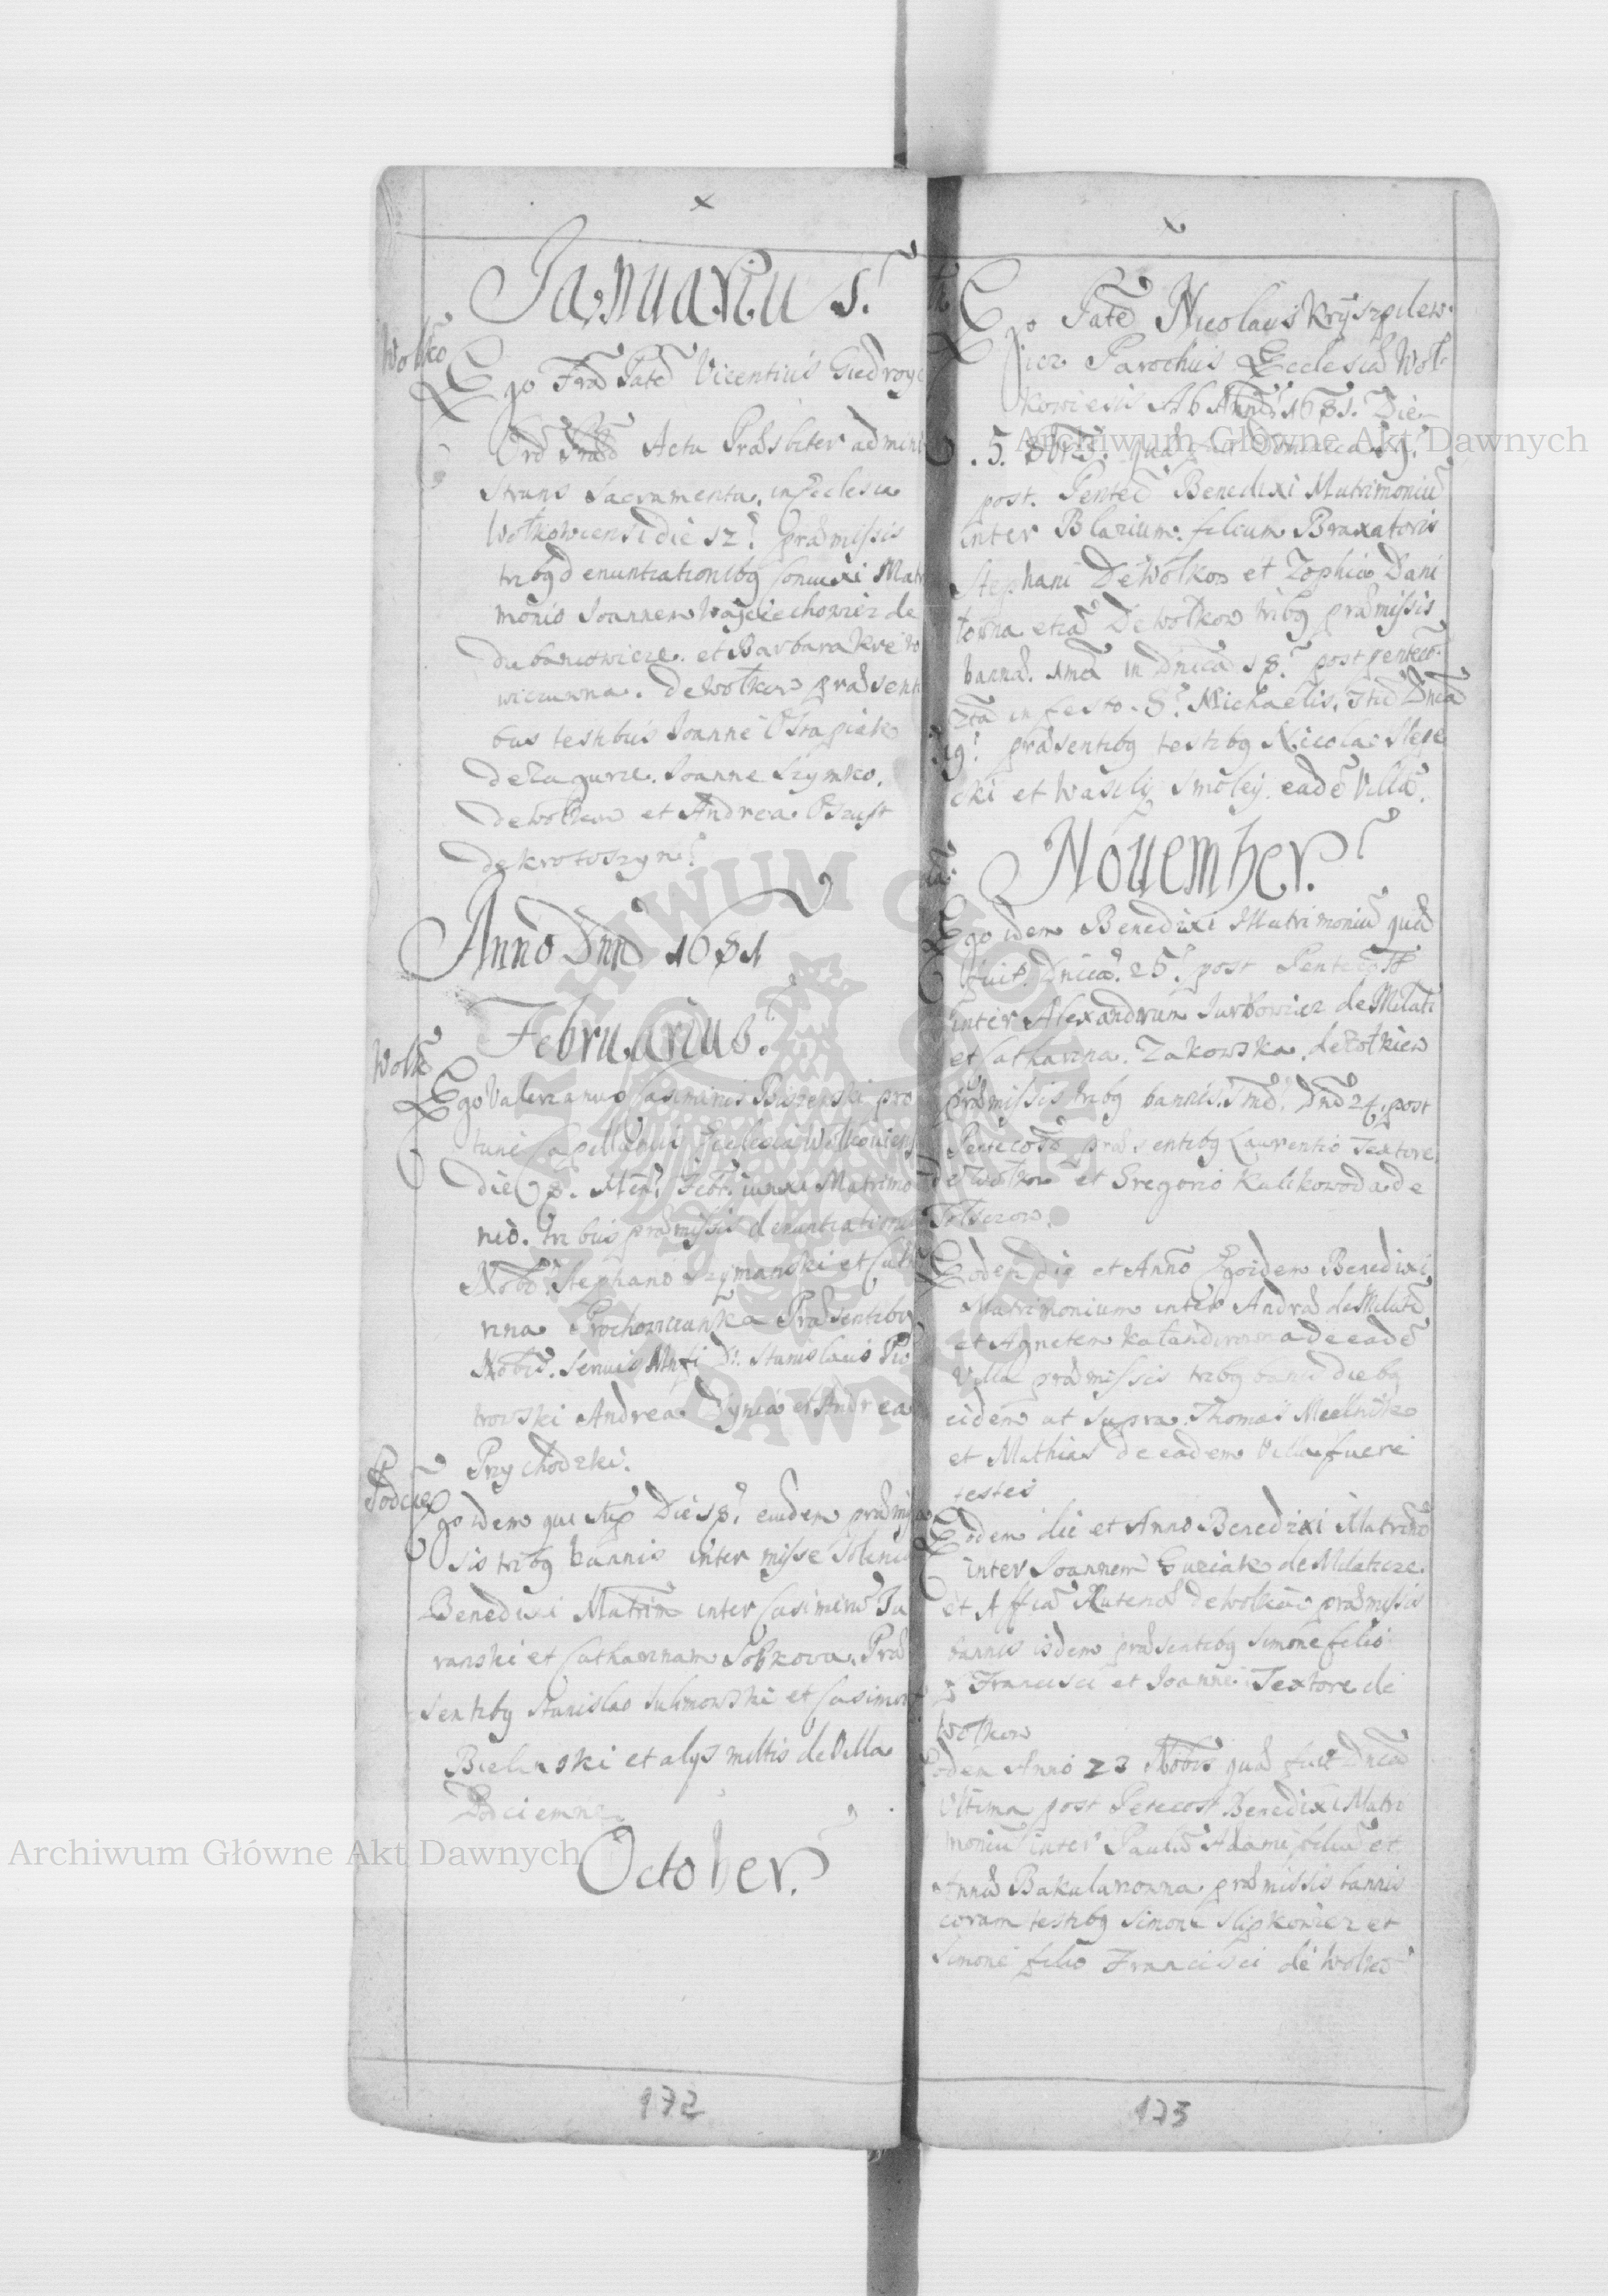 Januarius.
Wołko
Ego Frā Patē Vicentius Giedroyc
Ord Prād Actu Præsbiter admini
strans Sacramenta. in Ecclesia
Wołkowiensi die 12. præmissis
tribq denuntiationibq Coniuxi Matri
monio Ioannem Woyciechowicz de
dubanowicze. et Barbara Krew
wiczowna. de Wołkow præsenti
bus testibus Ioanne Ostapiak
de Zagurze. Ioanne Szymko.
de Wołkow et Andrea Oszust
de Krotoszyn.
Anno Dnī 1681
Februarius.
Wołk
Ego Valerianus Casimirus Biszenski pro
tunc Capellanus Ecclesia Wolkowiens
die 8. Feb. iunxi Matrimo
nio. tribus præmissis denuntiationi
Nobō. Stephano Szymanski et Cath
rina Prochowianka Præsentibq
Nobīs. Seruis Stanislaus Pio
trowski Andrea Dynia et Andrea
Przychodzki.
Podcie
Ego idem qui Sup Die 18. eiusdem præmis
sis tribq bannis inter missæ Solenia
Benedixi Matrim inter Casimirū Ju
ranski et Catharinam Sobkowa. Præ
sentibq Stanislao Sulimowski et Casimiro
Bielinski et alys multis de Villa
Podciemne
October.
172
Ego Patē Nicolaus Kryszpilew.
icz Parochus Ecclesiæ Woł-
kowiesis Ab Anno 1681. Die
.5. 8bris. quæ Dominica 19.
post. Pentec Benedixi Matrimoniū
inter Blazium. filium Braxatoris
Stephani De Wołkow et Zophia Dani
lowna etiā De Wołkow tribq præmissis
bannis. 1mā in Dnīca 18. post pentecō
2dā in festo. S. Michaelis. 3tiā Dnīcā
19. præsentibq testibq Nicolao Slepe
cki et Wasily Smoley. eadē Villā.
Nouember.
Ego idem Benedixi Matrimoniū quæ
fuit. Dnīca. 25. post Pentecost
inter Alexandrum Jurkowicz de Milati
et Catharina. Zakowska. de Zołkiew
præmissis tribq bannis. 1mā. Dnī 24. post
Pentecost præsentibq Laurentio Textore.
de Wołkow et Gregorio Kulikowoda de
Tolszczow.
Eodem die et Anno Ego idem Benedixi
Matrimonium inter Andræ de Milati
et Agnetem Kalandirowna de eadē
Villa præmissis tribq bannis diebq
eidem ut supra. Thomas Mielnik
et Mathias de eadem Villa fuere
testes
Eodem die et Anno Benedixi Matrimo
inter Ioannem Guziak de Milaticze.
et Affia Rutena de Wolkow præmissis
bannis isdem præsentibq Simone filio
Francisci et Ioanne Textore de
Wołkow
Eodem Anno 23 Nobris quæ fuit Dnīca
Vltima post Petecost Benedixi Matri
moniū inter Paulū Adami filiū et
Annā Bakularowna. præmissis bannis
coram testibq Simone Slipkowicz et
Simone filio Francisci de Wołko
173
Archiwum Główne Akt Dawnych
Archiwum Główne Akt Dawnych
ARCHIWUM GŁÓWNE AKT DAWNYCH